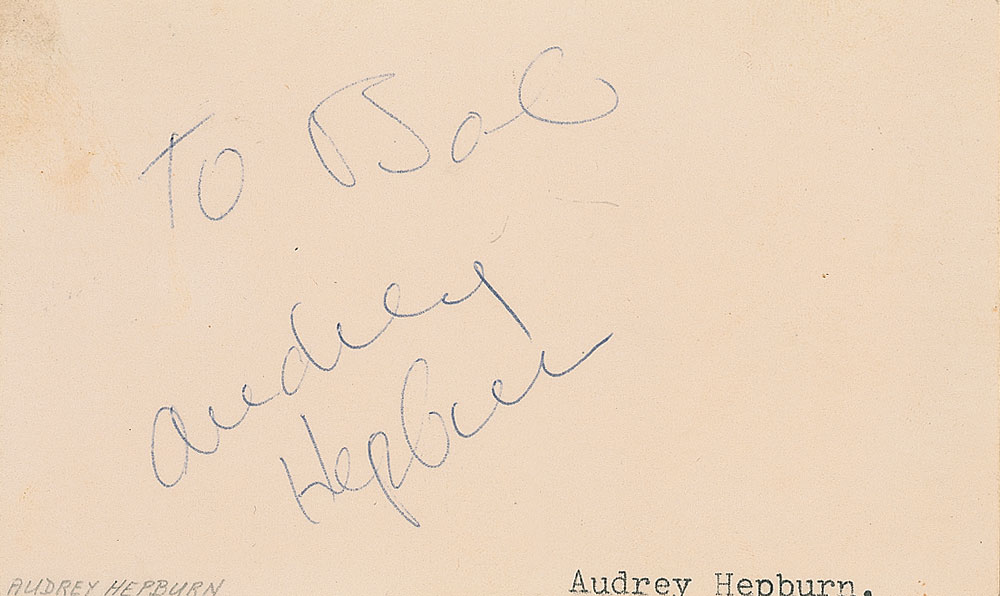 To Bob
Audrey
Hepburn
AUDREY HEPBURN
Audrey Hepburn.